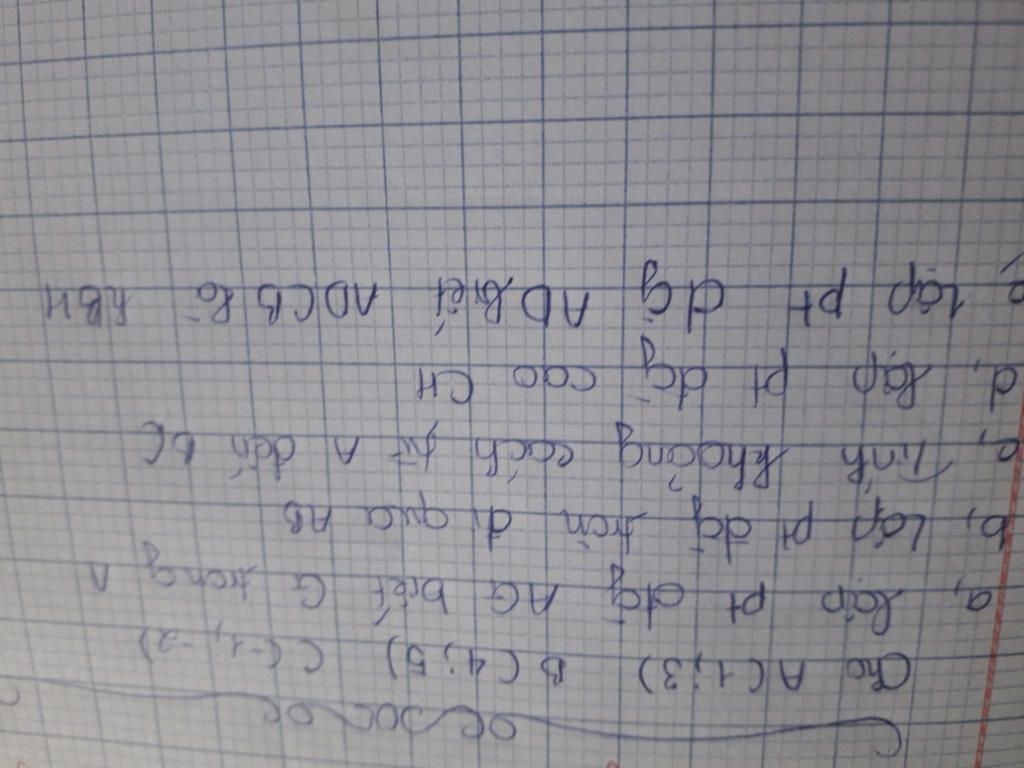 Cho A(1;3) B(4;5) C(-1,-2)
a, lập pt đg AG biết G trọng
b, Lập pt đg tròn đi qua AB
c, Tính khoảng cách từ A đến BC
d, lập pt đg cao CH
e, lập pt đg AD biết ADCB là hbh